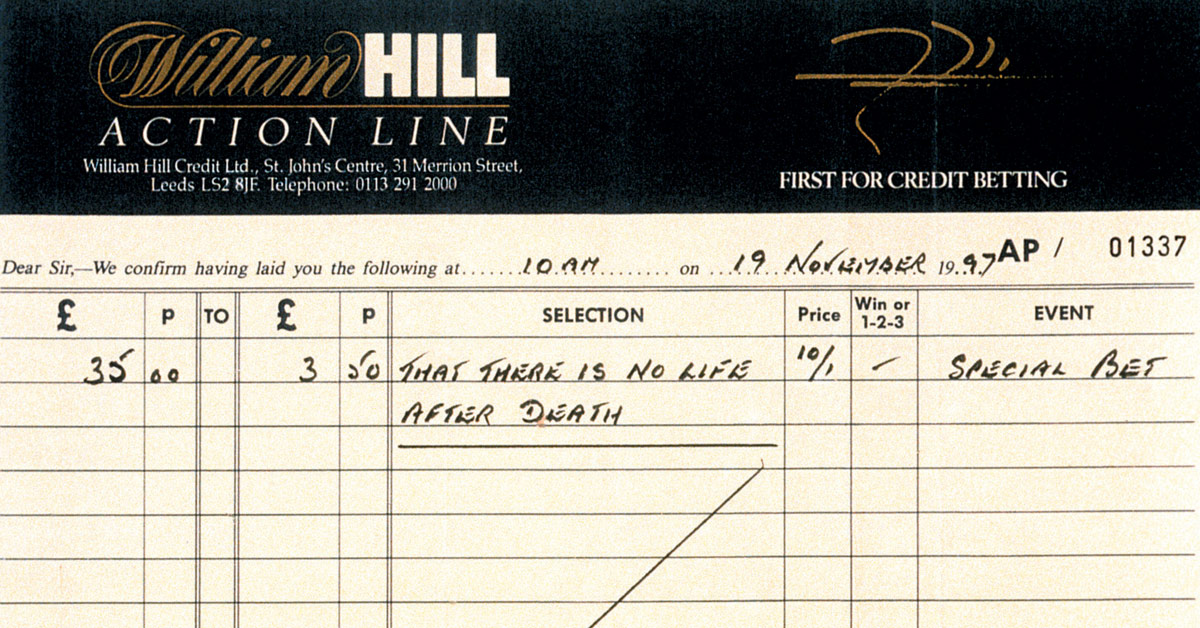 William HILL
ACTION LINE
William Hill Credit Ltd., St. John's Centre, 31 Merrion Street,
Leeds LS2 8JF. Telephone: 0113 291 2000
FIRST FOR CREDIT BETTING
Dear Sir,—We confirm having laid you the following at.......10 AM......... on ...19 NOVEMBER 19.97 AP / 01337
£ P TO £ P SELECTION Price Win or 1-2-3 EVENT
35 00 3 50 THAT THERE IS NO LIFE 10/1 – SPECIAL BET
AFTER DEATH